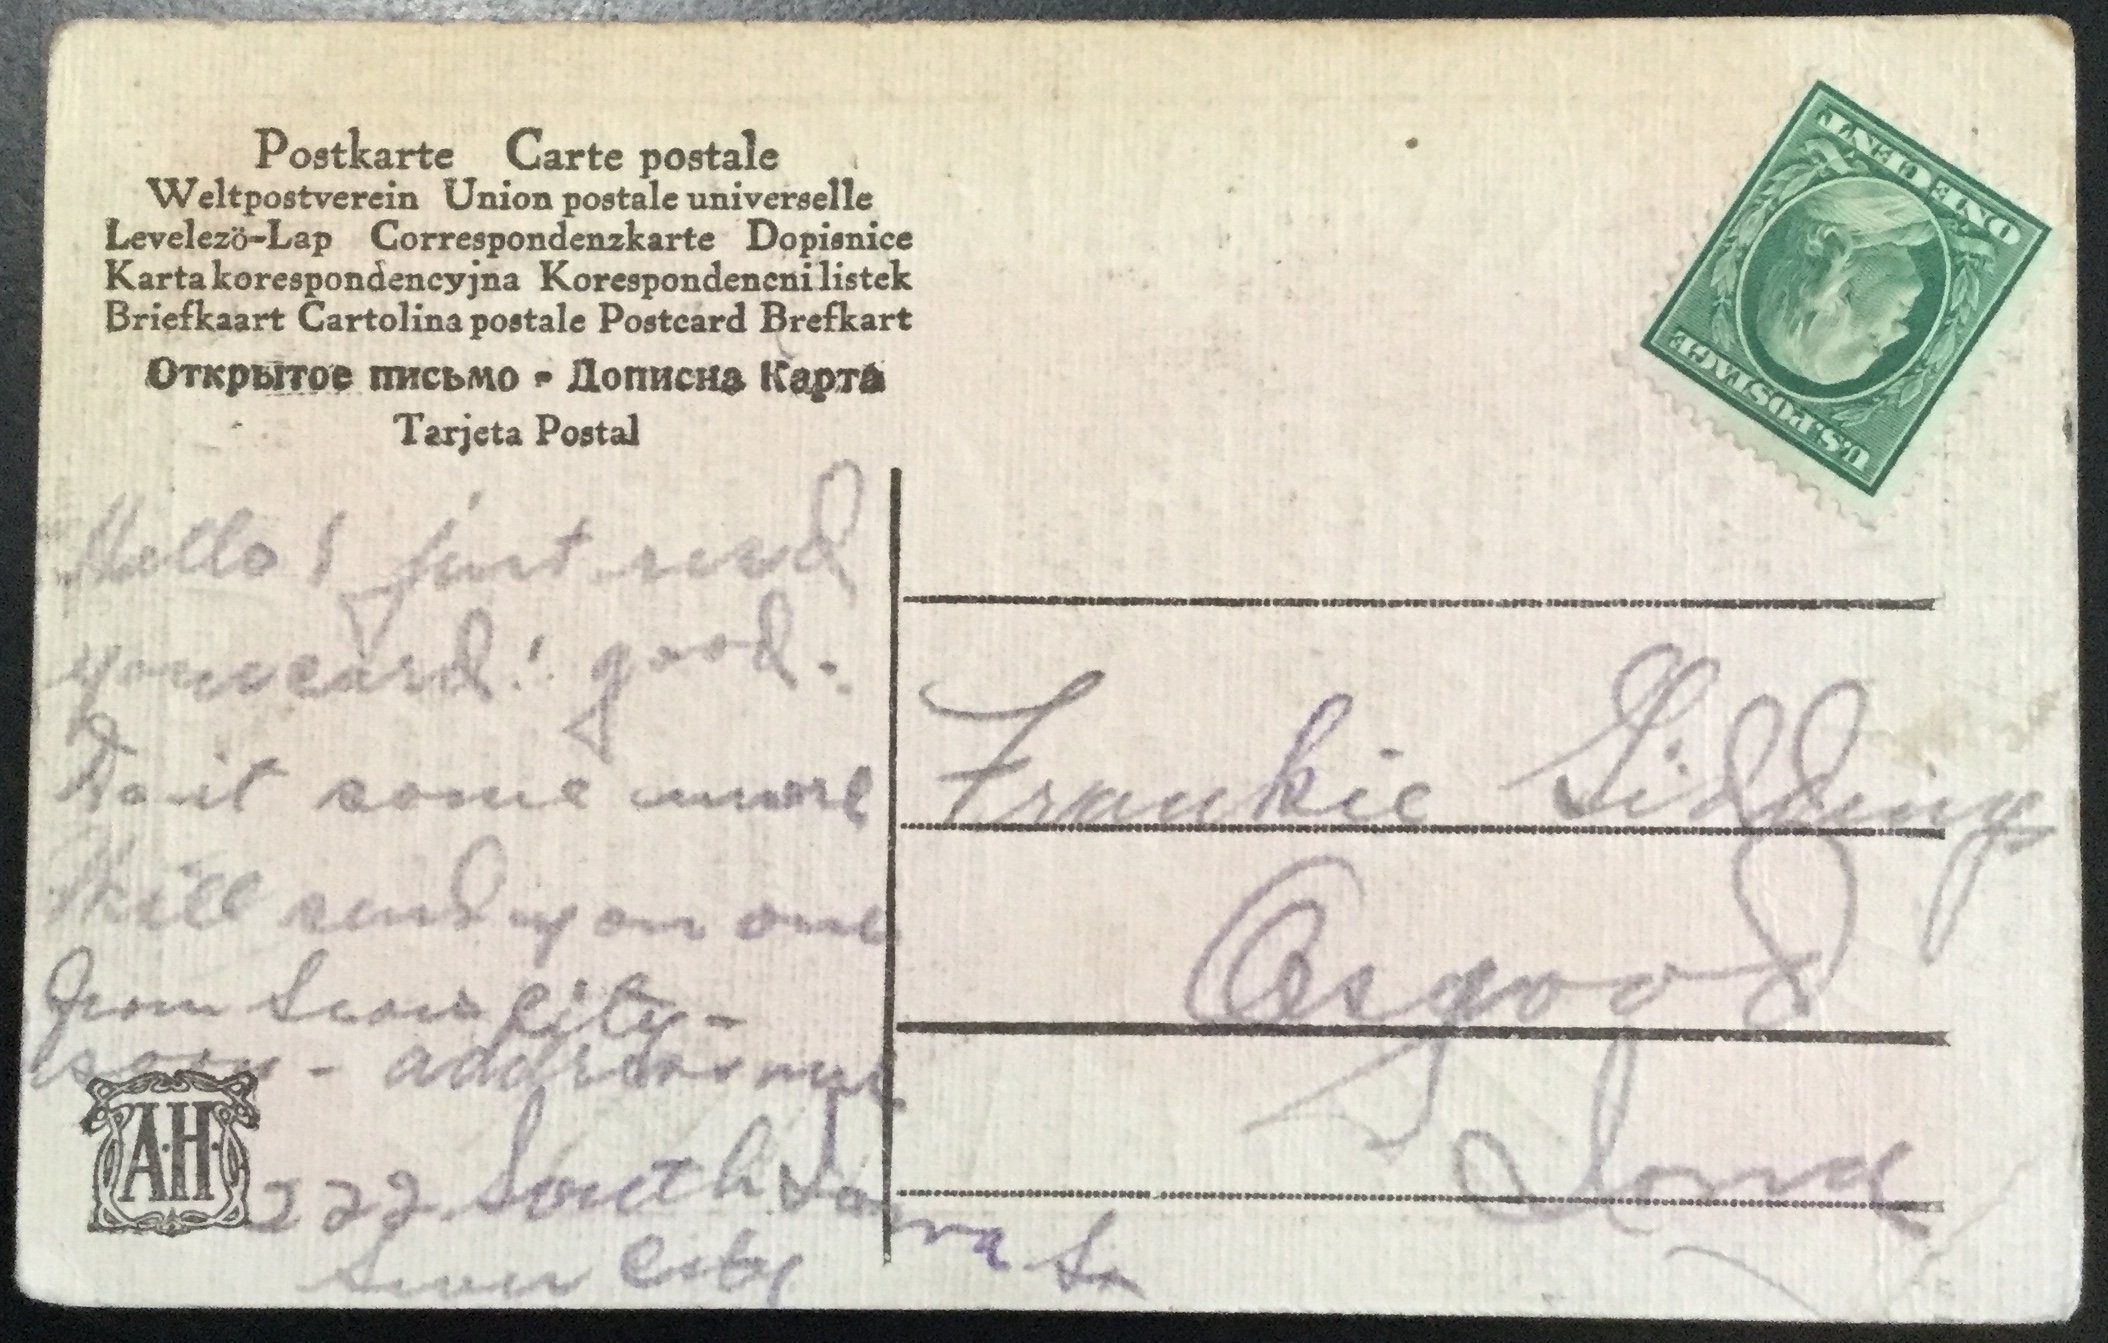 Postkarte Carte postale
Weltpostverein Union postale universelle
Levelezö-Lap Correspondenzkarte Dopisnice
Karta korespondencyjna Korespondencni listek
Briefkaart Cartolina postale Postcard Brefkart
Открытое письмо - Дописна Карта
Tarjeta Postal
ONE CENT
U.S. POSTAGE
Hello! just read
your card! good.
Do it some more
Will send you one
from City -
address
222 South Iowa St
City
Frankie Giddings
Osgood
Iowa
A·H·